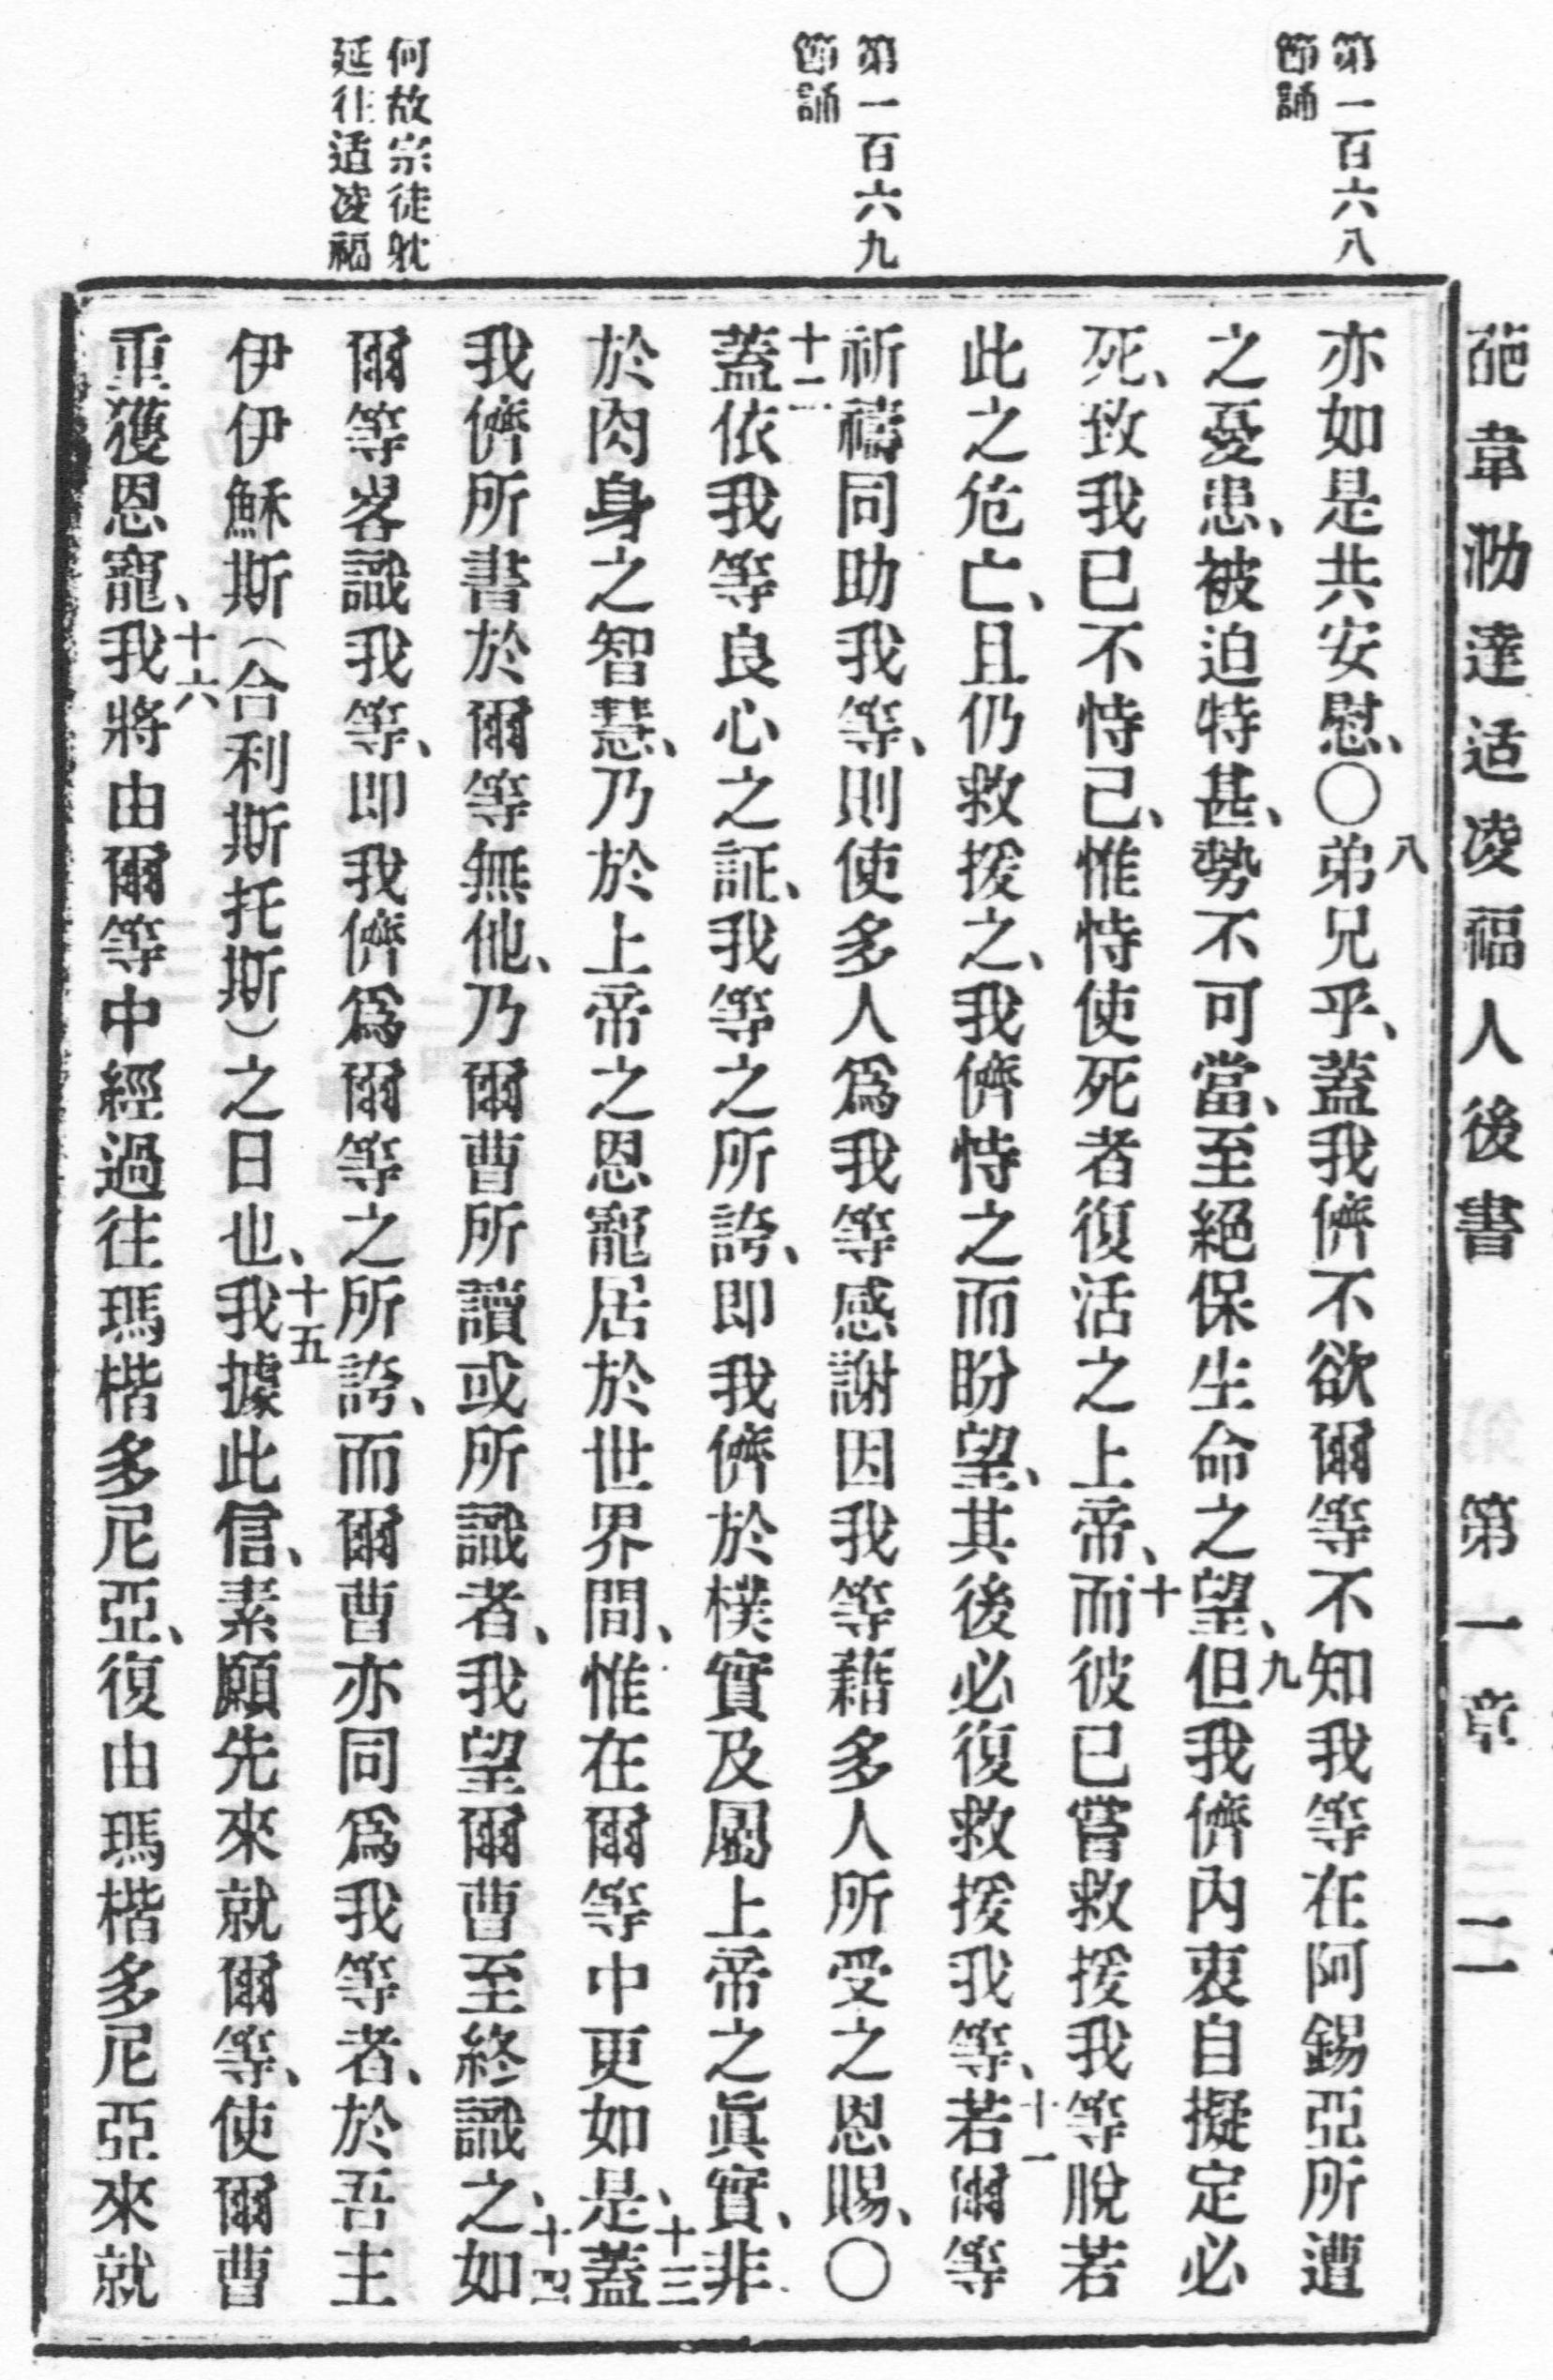 葩韋泐達适凌福人後書 第一章 二
第一百六八
節誦
第一百六九
節誦
何故宗徒躭
延往适凌福
亦如是共安慰、〇八弟兄乎、蓋我儕不欲爾等不知我等在阿錫亞所遭
之憂患、被迫特甚、勢不可當、至絕保生命之望、九但我儕內衷自擬定必
死、致我已不恃己、惟恃使死者復活之上帝、十而彼已嘗救援我等脫若
此之危亡、且仍救援之、我儕恃之而盼望、其後必復救援我等、十一若爾等
祈禱同助我等、則使多人爲我等感謝因我等藉多人所受之恩賜、〇
十二蓋依我等良心之証、我等之所誇、即我儕於樸實及屬上帝之眞實、非
於肉身之智慧、乃於上帝之恩寵居於世界間、惟在爾等中更如是、十三蓋
我儕所書於爾等無他、乃爾曹所讀或所識者、我望爾曹至終識之、十四如
爾等畧識我等、即我儕爲爾等之所誇、而爾曹亦同爲我等者、於吾主
伊伊穌斯（合利斯托斯）之日也、十五我據此信、素願先來就爾等、使爾曹
重獲恩寵、十六我將由爾等中經過往瑪楷多尼亞、復由瑪楷多尼亞來就